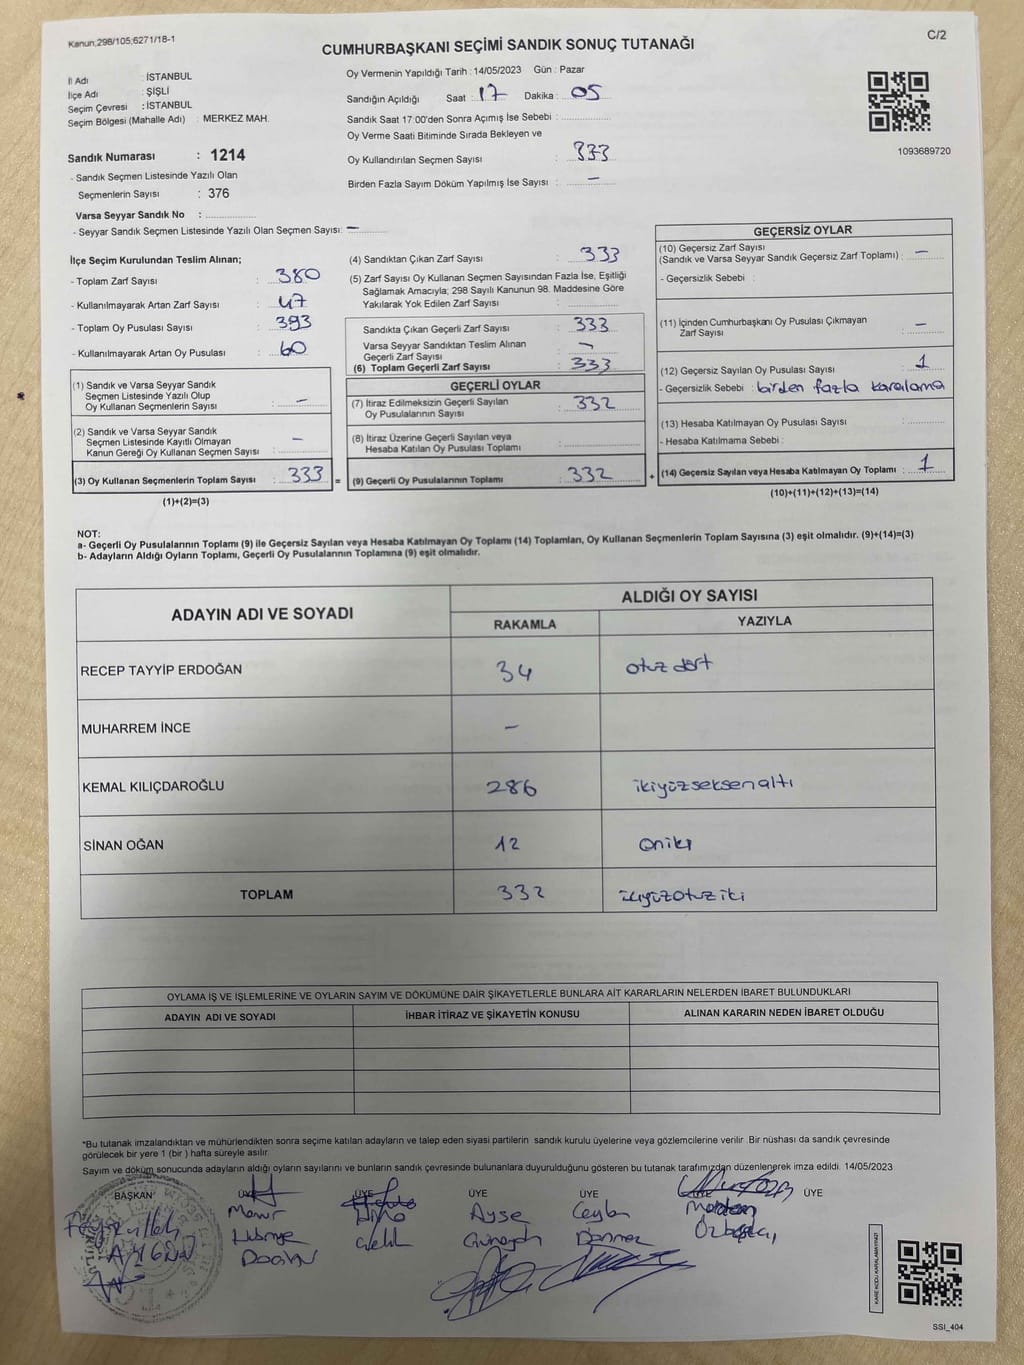 Kanun:298/105;6271/18-1
C/2
CUMHURBAŞKANI SEÇİMİ SANDIK SONUÇ TUTANAĞI
İl Adı : İSTANBUL
İlçe Adı : ŞİŞLİ
Seçim Çevresi : İSTANBUL
Seçim Bölgesi (Mahalle Adı) : MERKEZ MAH.
Sandık Numarası : 1214
- Sandık Seçmen Listesinde Yazılı Olan
Seçmenlerin Sayısı : 376
Varsa Seyyar Sandık No : ..................
- Seyyar Sandık Seçmen Listesinde Yazılı Olan Seçmen Sayısı: —
Oy Vermenin Yapıldığı Tarih : 14/05/2023 Gün : Pazar
Sandığın Açıldığı Saat : 17 Dakika : 05
Sandık Saat 17:00'den Sonra Açımış İse Sebebi : ..................
Oy Verme Saati Bitiminde Sırada Bekleyen ve
Oy Kullandırılan Seçmen Sayısı : 333
Birden Fazla Sayım Döküm Yapılmış İse Sayısı : —
1093689720
İlçe Seçim Kurulundan Teslim Alınan;
- Toplam Zarf Sayısı : 380
- Kullanılmayarak Artan Zarf Sayısı : 47
- Toplam Oy Pusulası Sayısı : 393
- Kullanılmayarak Artan Oy Pusulası : 60
(1) Sandık ve Varsa Seyyar Sandık
Seçmen Listesinde Yazılı Olup
Oy Kullanan Seçmenlerin Sayısı : —
(2) Sandık ve Varsa Seyyar Sandık
Seçmen Listesinde Kayıtlı Olmayan
Kanun Gereği Oy Kullanan Seçmen Sayısı : —
(3) Oy Kullanan Seçmenlerin Toplam Sayısı : 333 =
(1)+(2)=(3)
(4) Sandıktan Çıkan Zarf Sayısı : 333
(5) Zarf Sayısı Oy Kullanan Seçmen Sayısından Fazla İse, Eşitliği
Sağlamak Amacıyla; 298 Sayılı Kanunun 98. Maddesine Göre
Yakılarak Yok Edilen Zarf Sayısı : ..................
Sandıkta Çıkan Geçerli Zarf Sayısı : 333
Varsa Seyyar Sandıktan Teslim Alınan
Geçerli Zarf Sayısı : —
(6) Toplam Geçerli Zarf Sayısı : 333
GEÇERLİ OYLAR
(7) İtiraz Edilmeksizin Geçerli Sayılan
Oy Pusulalarının Sayısı : 332
(8) İtiraz Üzerine Geçerli Sayılan veya
Hesaba Katılan Oy Pusulası Toplamı : ..................
(9) Geçerli Oy Pusulalarının Toplamı : 332 +
GEÇERSİZ OYLAR
(10) Geçersiz Zarf Sayısı
(Sandık ve Varsa Seyyar Sandık Geçersiz Zarf Toplamı) : —
- Geçersizlik Sebebi :
(11) İçinden Cumhurbaşkanı Oy Pusulası Çıkmayan
Zarf Sayısı : —
(12) Geçersiz Sayılan Oy Pusulası Sayısı : 1
- Geçersizlik Sebebi : birden fazla karalama
(13) Hesaba Katılmayan Oy Pusulası Sayısı : ..................
- Hesaba Katılmama Sebebi :
(14) Geçersiz Sayılan veya Hesaba Katılmayan Oy Toplamı : 1
(10)+(11)+(12)+(13)=(14)
NOT:
a- Geçerli Oy Pusulalarının Toplamı (9) ile Geçersiz Sayılan veya Hesaba Katılmayan Oy Toplamı (14) Toplamları, Oy Kullanan Seçmenlerin Toplam Sayısına (3) eşit olmalıdır. (9)+(14)=(3)
b- Adayların Aldığı Oyların Toplamı, Geçerli Oy Pusulalarının Toplamına (9) eşit olmalıdır.
ADAYIN ADI VE SOYADI
ALDIĞI OY SAYISI
RAKAMLA YAZIYLA
RECEP TAYYİP ERDOĞAN 34 otuz dört
MUHARREM İNCE —
KEMAL KILIÇDAROĞLU 286 ikiyüzseksenaltı
SİNAN OĞAN 12 oniki
TOPLAM 332 ikiyüzotuziki
OYLAMA İŞ VE İŞLEMLERİNE VE OYLARIN SAYIM VE DÖKÜMÜNE DAİR ŞİKAYETLERLE BUNLARA AİT KARARLARIN NELERDEN İBARET BULUNDUKLARI
ADAYIN ADI VE SOYADI İHBAR İTİRAZ VE ŞİKAYETİN KONUSU ALINAN KARARIN NEDEN İBARET OLDUĞU
*Bu tutanak imzalandıktan ve mühürlendikten sonra seçime katılan adayların ve talep eden siyasi partilerin sandık kurulu üyelerine veya gözlemcilerine verilir. Bir nüshası da sandık çevresinde
görülecek bir yere 1 (bir ) hafta süreyle asılır.
Sayım ve döküm sonucunda adayların aldığı oyların sayılarını ve bunların sandık çevresinde bulunanlara duyurulduğunu gösteren bu tutanak tarafımızdan düzenlenerek imza edildi. 14/05/2023
BAŞKAN ÜYE ÜYE ÜYE ÜYE ÜYE
Ayşe Ceylan
KARE KODU KARALAMAYINIZ!
SSI_404